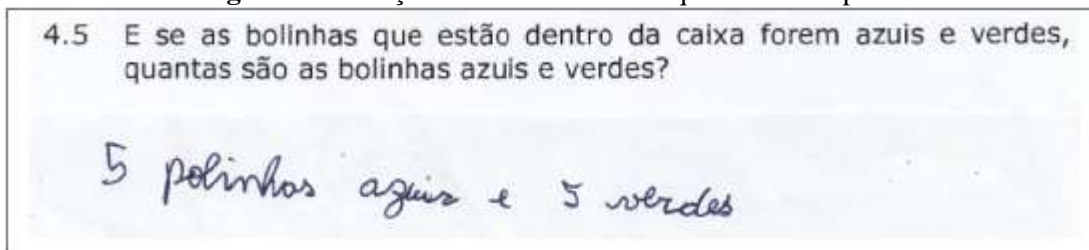 4.5 E se as bolinhas que estão dentro da caixa forem azuis e verdes,
quantas são as bolinhas azuis e verdes?
5 polinhas azuis e 5 verdes